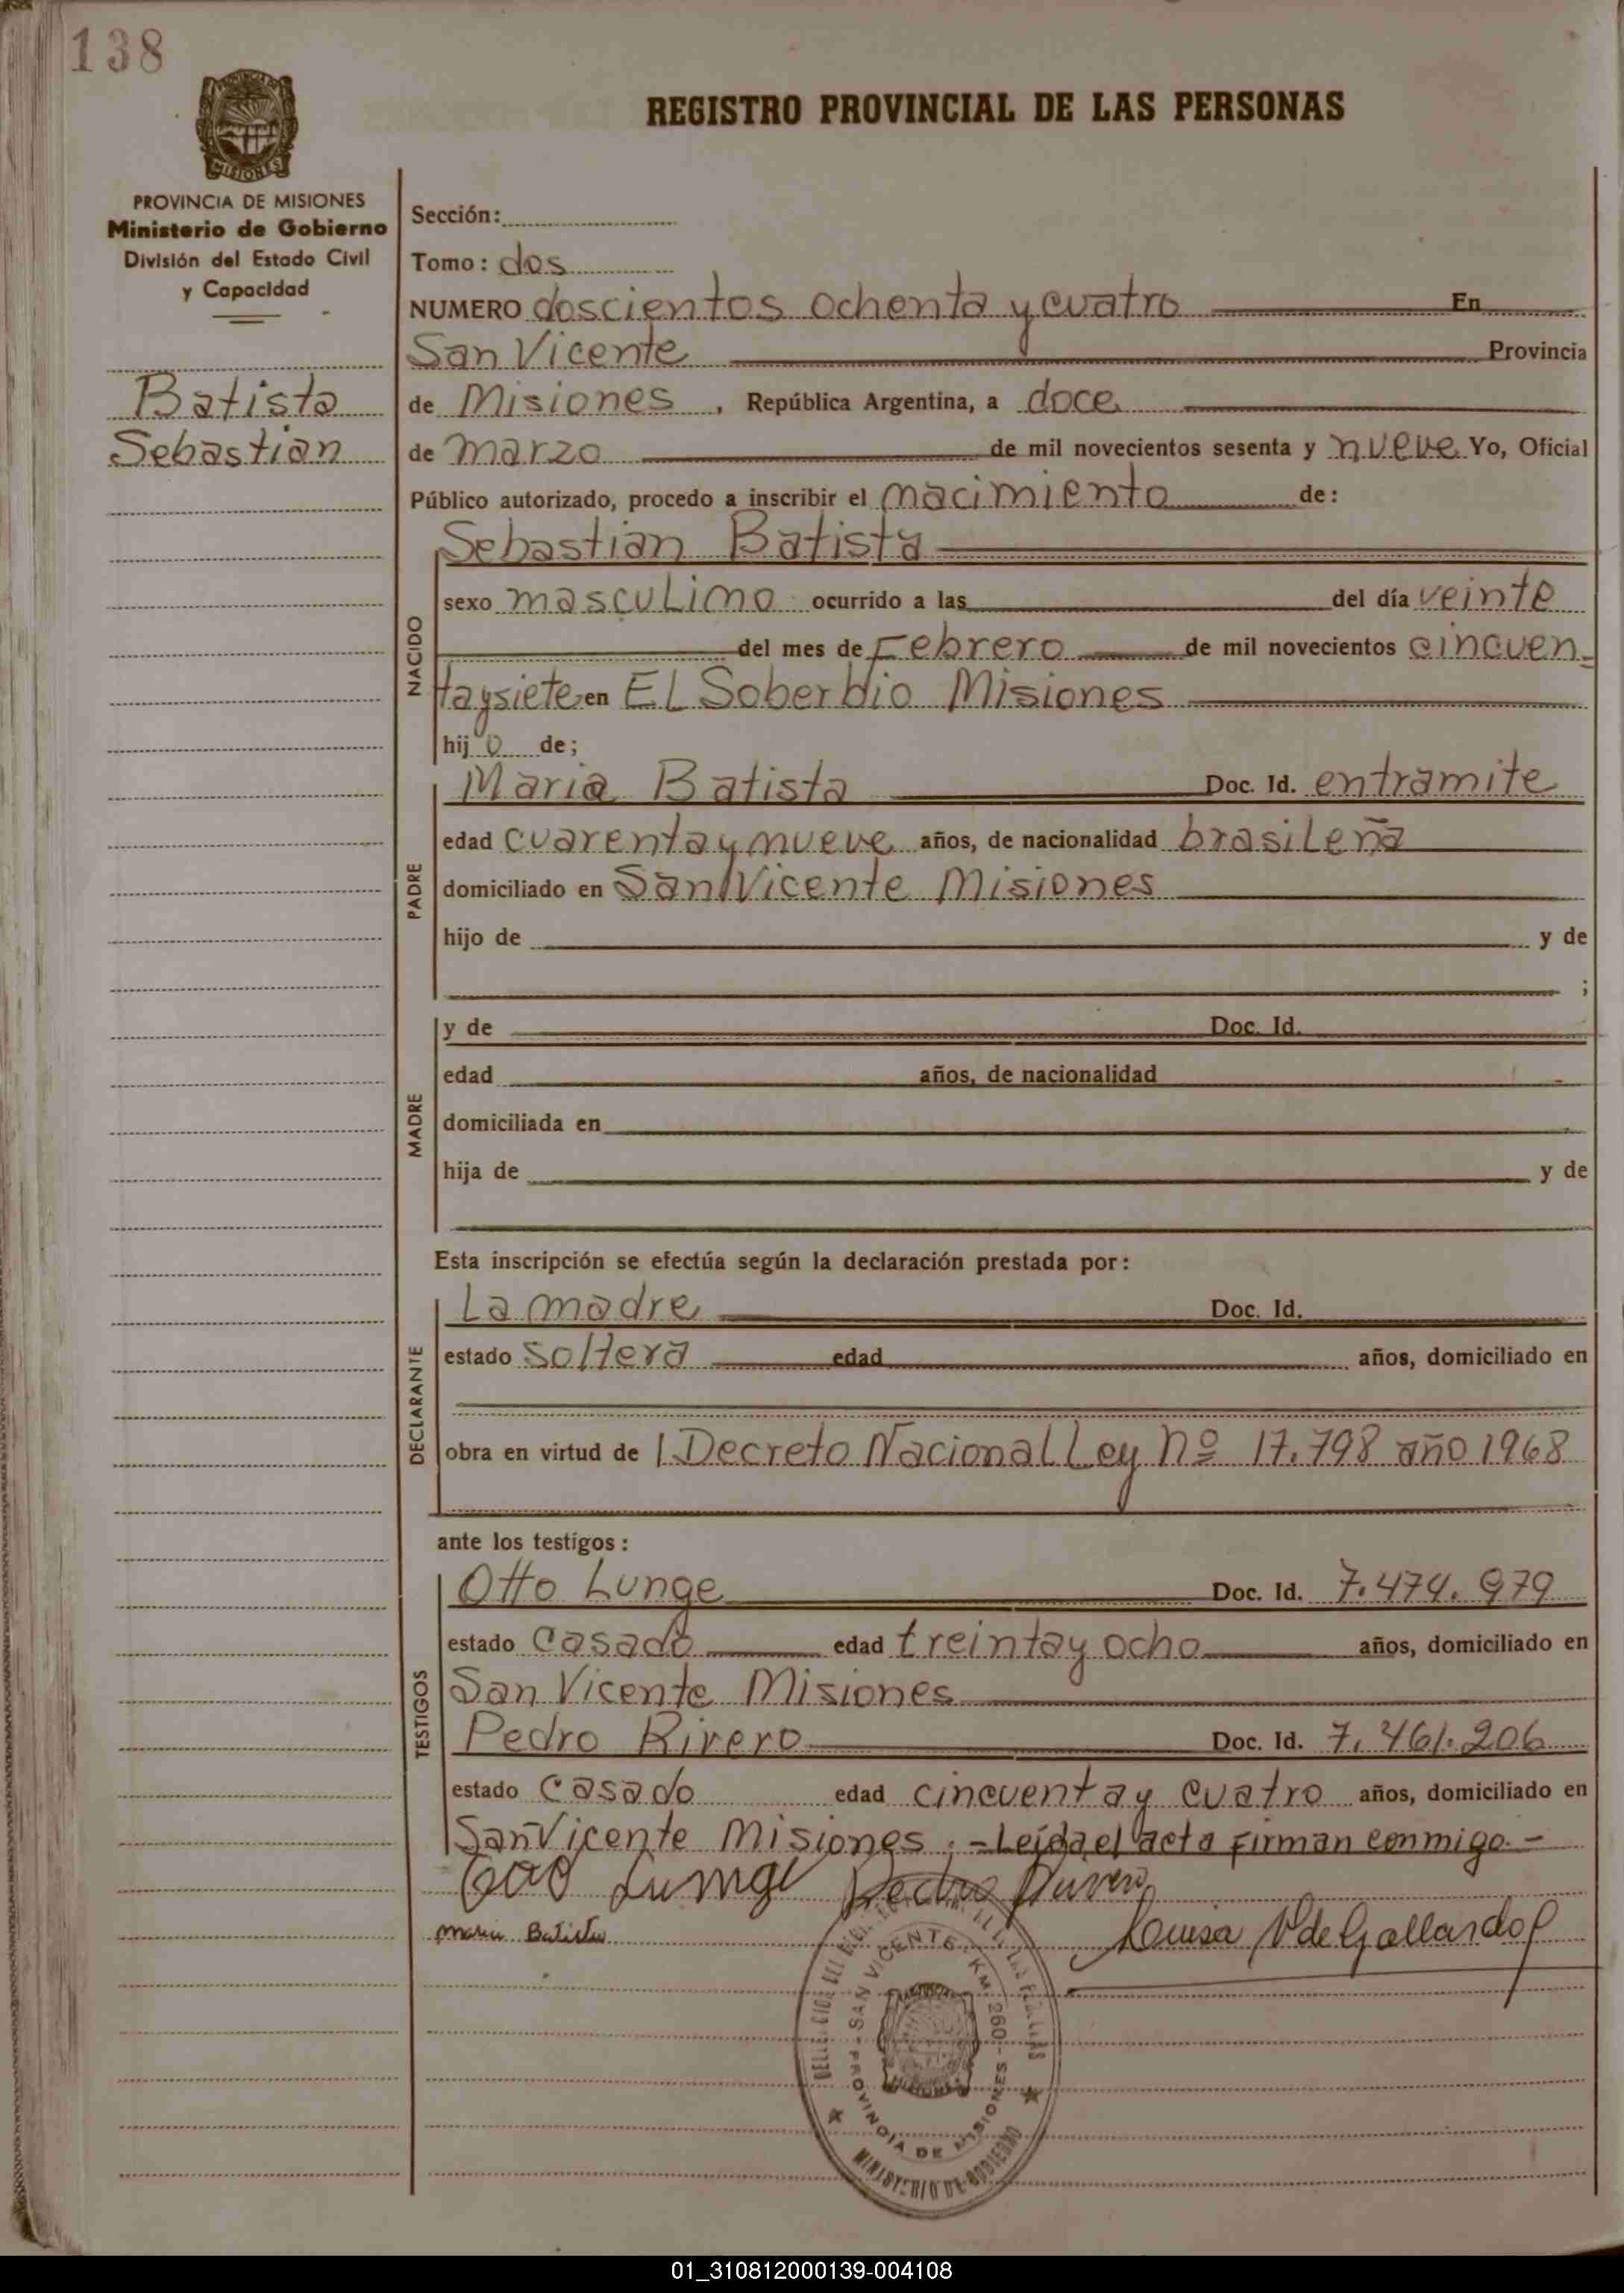 138
REGISTRO PROVINCIAL DE LAS PERSONAS
MISIONES
PROVINCIA DE MISIONES
Ministerio de Gobierno
División del Estado Civil
y Capacidad
Batista
Sebastian
Sección:
Tomo: dos
NUMERO doscientos ochenta y cuatro En
San Vicente Provincia
de Misiones, República Argentina, a doce
de marzo de mil novecientos sesenta y nueve Yo, Oficial
Público autorizado, procedo a inscribir el nacimiento de:
NACIDO
Sebastian Batista
sexo masculino ocurrido a las del día veinte
del mes de Febrero de mil novecientos cincuen-
taysiete en EL Soberbio Misiones
hijo de;
PADRE
Maria Batista Doc. Id. entramite
edad cuarenta y nueve años, de nacionalidad brasileña
domiciliado en San Vicente Misiones
hijo de y de
;
MADRE
y de Doc. Id.
edad años, de nacionalidad
domiciliada en
hija de y de
Esta inscripción se efectúa según la declaración prestada por:
DECLARANTE
La madre Doc. Id.
estado soltera edad años, domiciliado en
obra en virtud de l Decreto Nacional Ley nº 17.798 año 1968
ante los testigos:
TESTIGOS
Otto Lunge Doc. Id. 7.474.979
estado casado edad treinta y ocho años, domiciliado en
San Vicente Misiones
Pedro Rivero Doc. Id. 7.461.206
estado casado edad cincuenta y cuatro años, domiciliado en
San Vicente Misiones.-Leída el acta firman conmigo.-
Otto Lunge Pedro Rivero
Maria Batista Luisa V de Gallardo
SAN VICENTE - KM. 260 - PROVINCIA DE MISIONES
MINISTERIO DE GOBIERNO
01_310812000139-004108